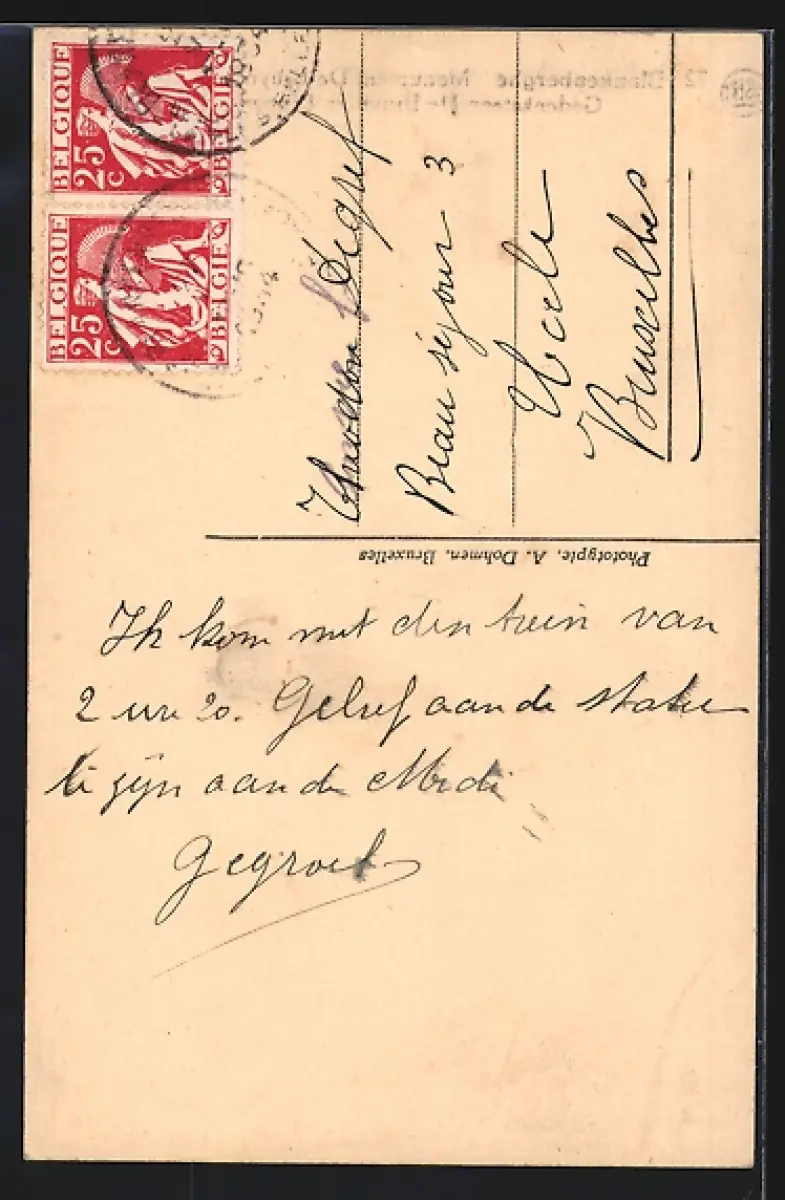 BELGIQUE
25 C
BELGIË
BELGIQUE
25 C
BELGIË
72 Blankenberghe Monument De Bruyne
Gedenkteeken De Bruyne
Degref
Beau séjour 3
Uccle
Bruxelles
Phototypie, A. Dohmen, Bruxelles
Ik kom met den trein van
2 ure 20. Gelief aan de statie
te zijn aan de Midi
Gegroet